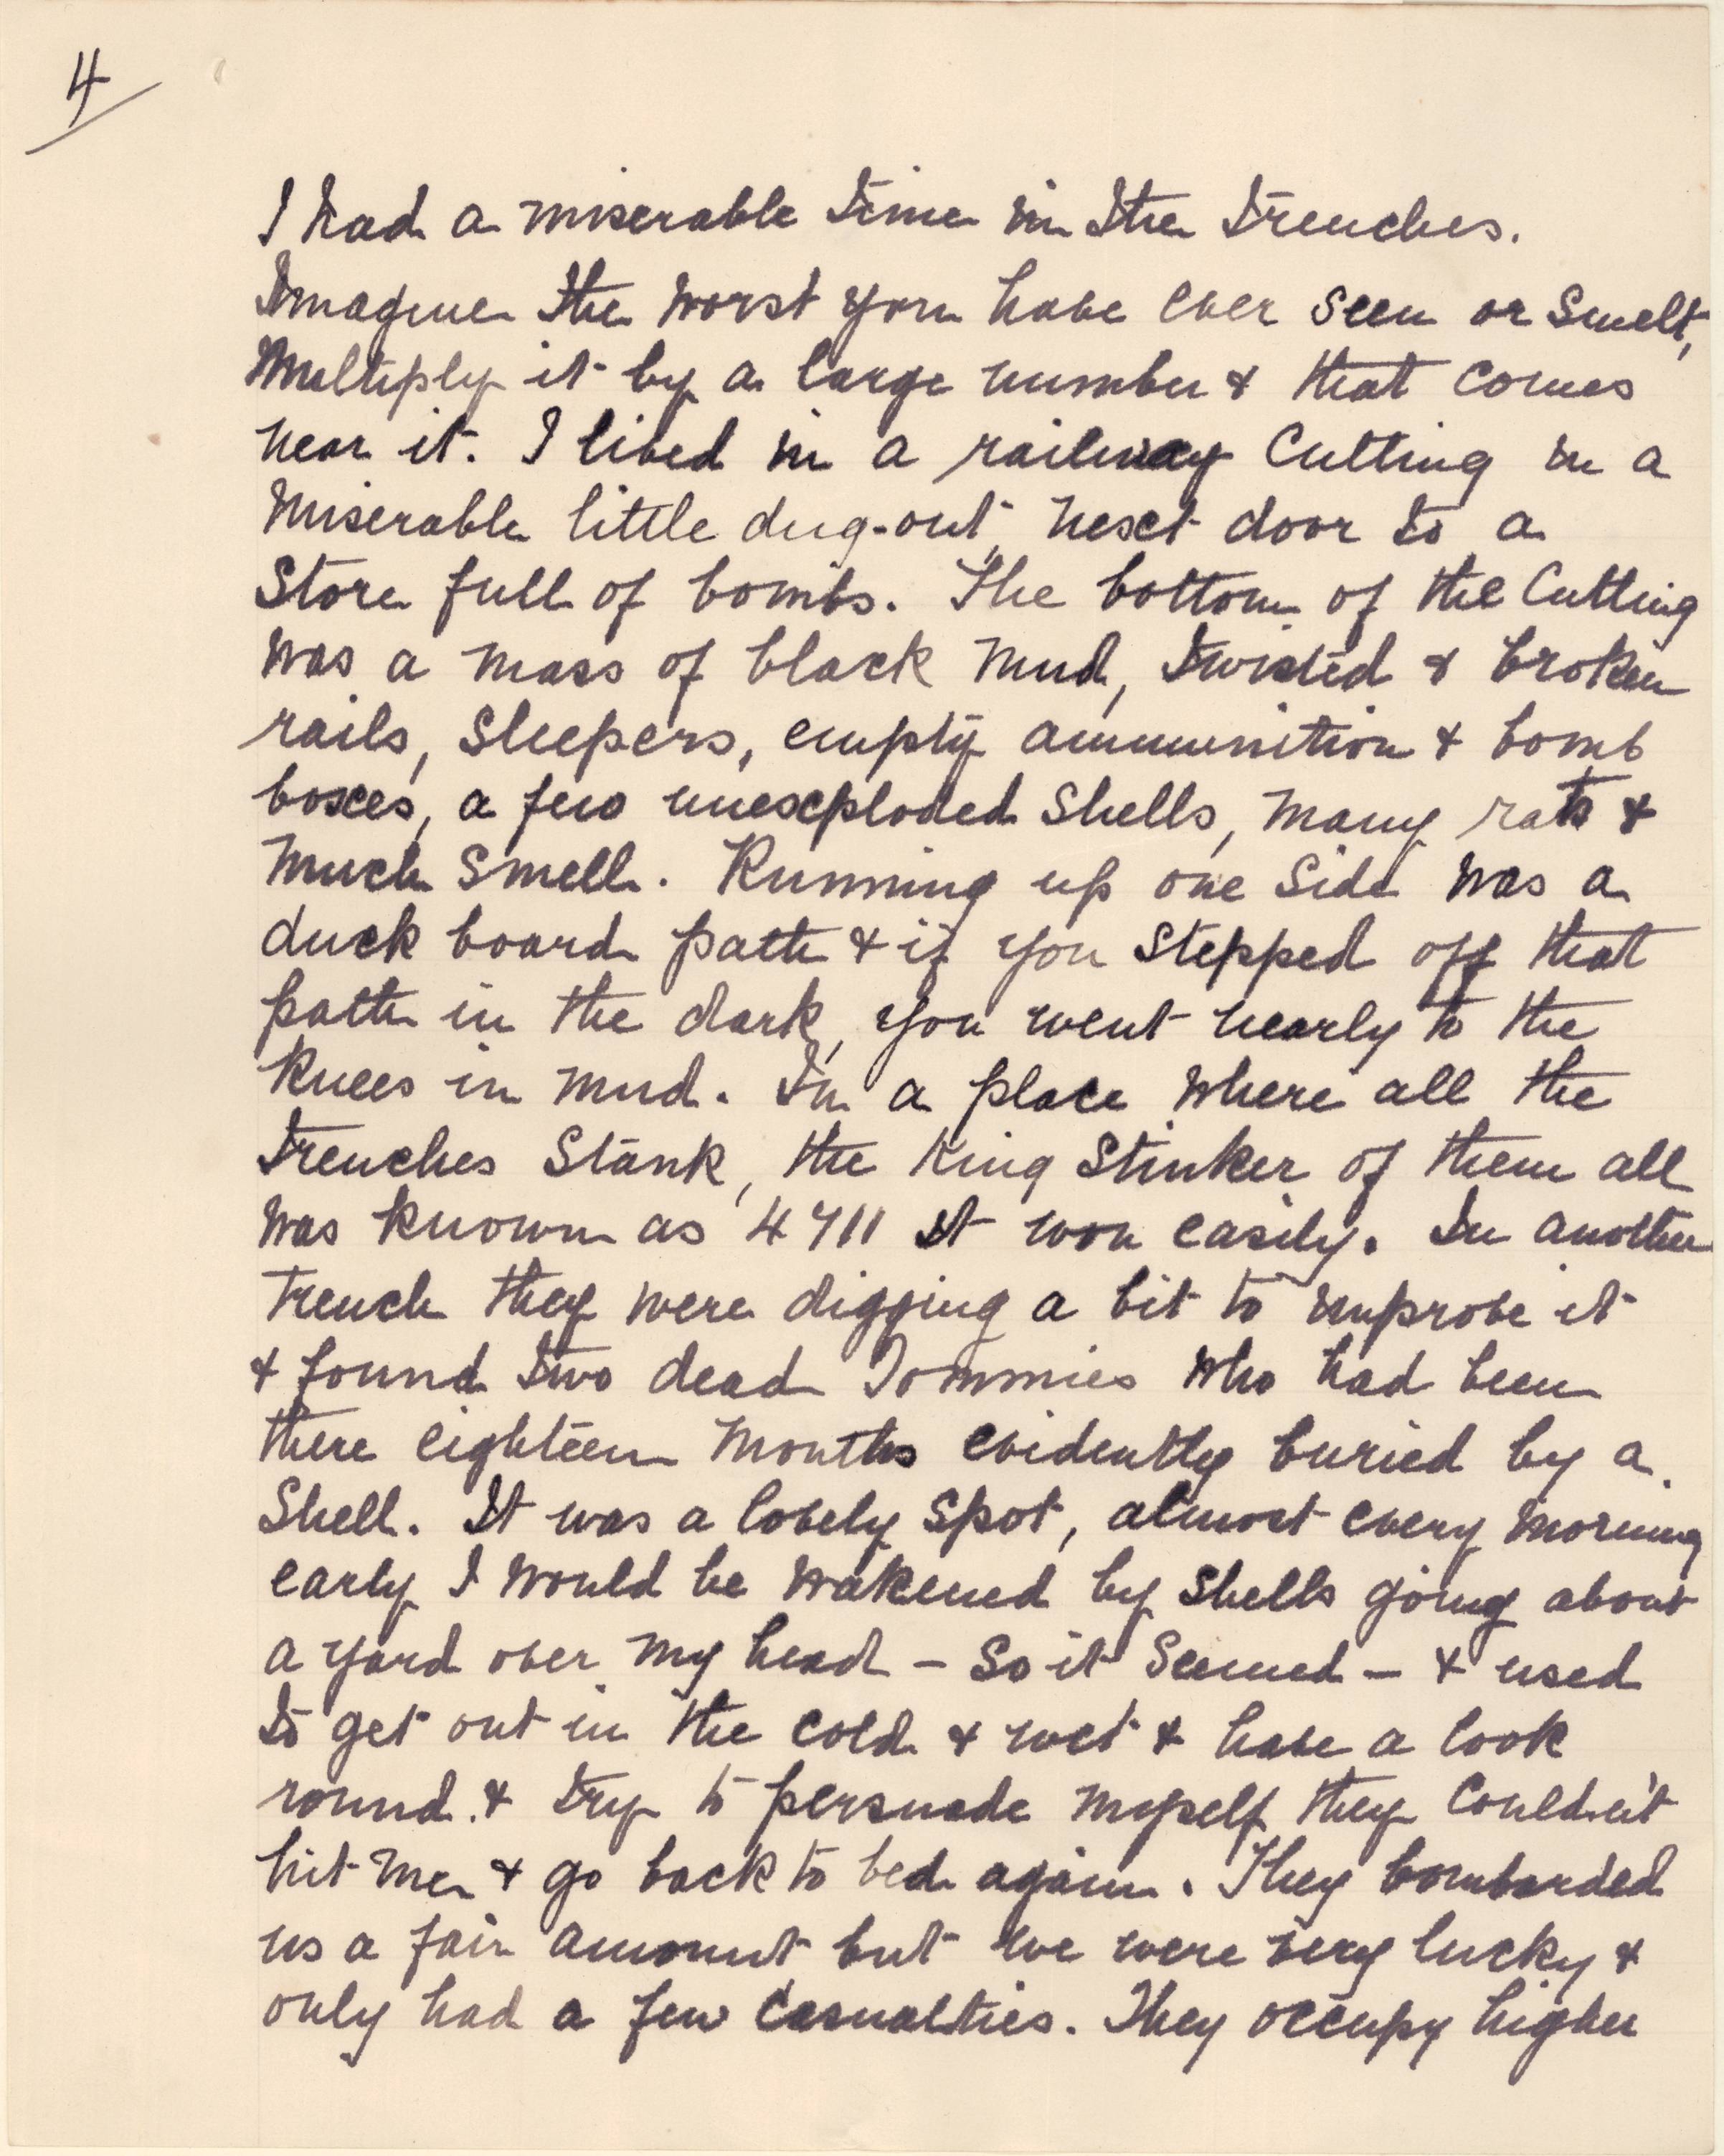 4
I had a miserable time in the trenches.
Imagine the worst you have ever seen or smelt,
multiply it by a large number & that comes
near it. I lived in a railway cutting in a
miserable little dug-out, next door to a
store full of bombs. The bottom of the cutting
was a mass of black mud, twisted & broken
rails, sleepers, empty ammunition & bomb
boxes, a few unexploded shells, many rats &
much smell. Running up one side was a
duck board path & if you stepped off that
path in the dark, you went nearly to the
knees in mud. In a place where all the
trenches stank, the king stinker of them all
was known as 4711 It won easily. In another
trench they were digging a bit to improve it
& found two dead Tommies who had been
there eighteen months evidently buried by a
shell. It was a lovely spot, almost every morning
early I would be wakened by shells going about
a yard over my head – so it seemed – & used
to get out in the cold & wet & have a look
round. & try to persuade myself they couldn't
hit me & go back to bed again. They bombarded
us a fair amount but we were very lucky &
only had a few casualties. They occupy higher